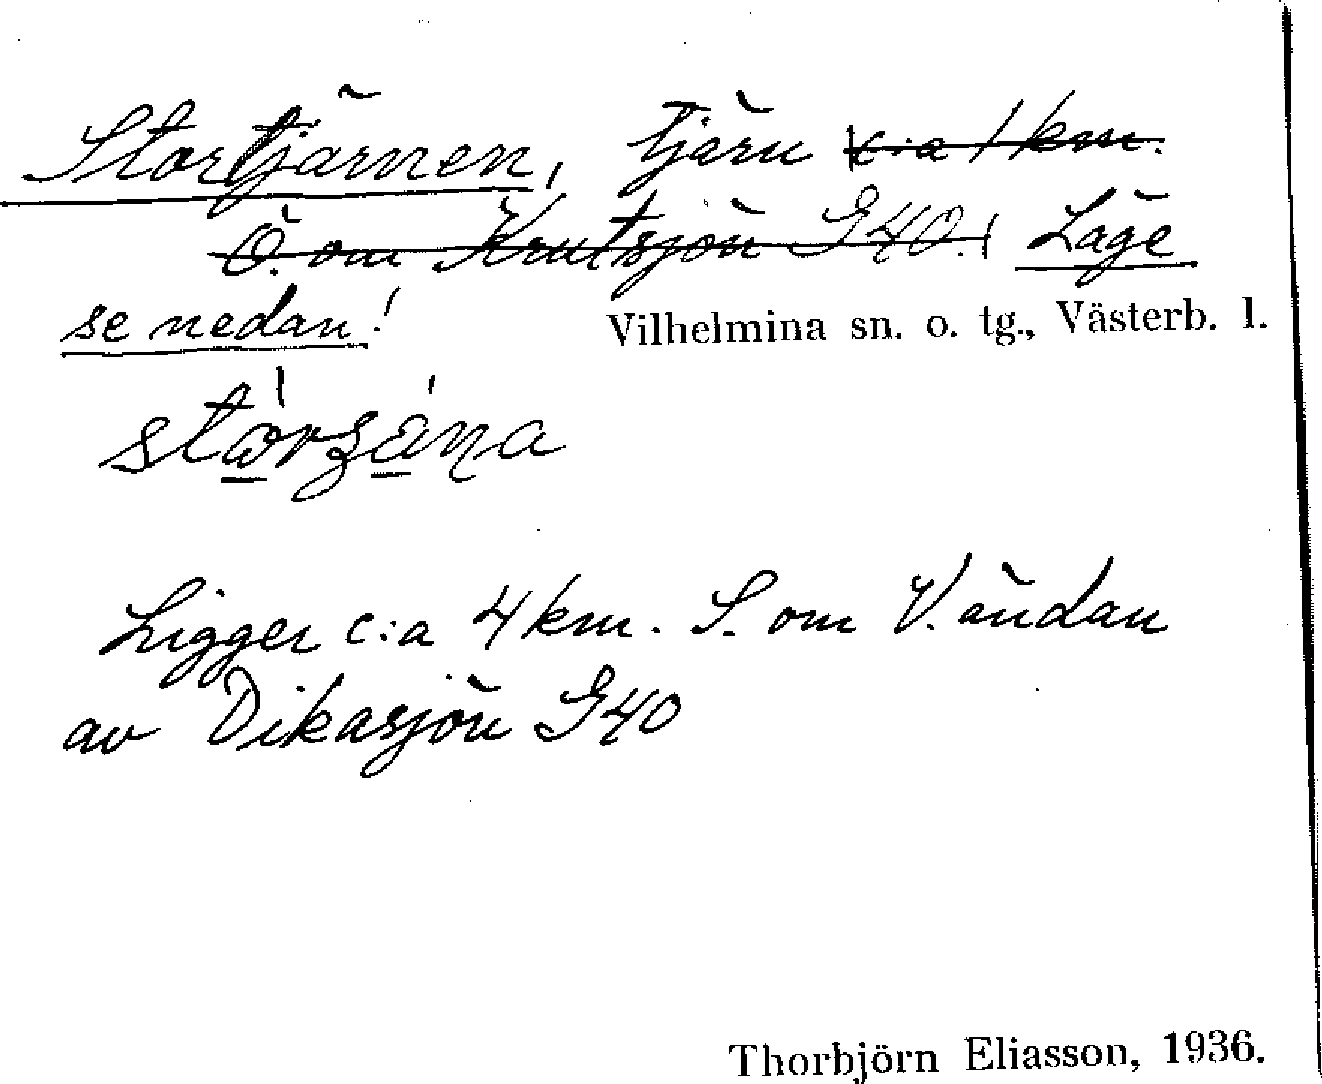 Stortjärnen, tjärn c:a 1 km.
Ö. om Krutsjön G40. Läge
se nedan!
Vilhelmina sn. o. tg., Västerb. l.
Ligger c:a 4 km. S. om V. ändan
av Dikasjön G40
Thorbjörn Eliasson, 1936.